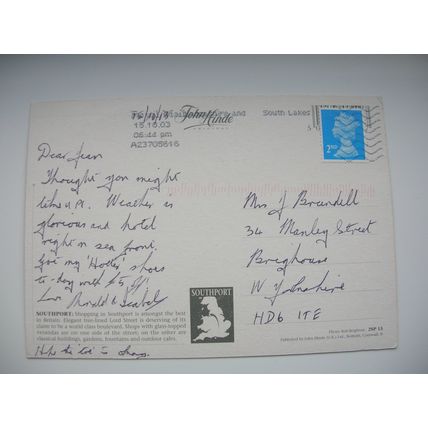 15/10/03
John Hinde
ORIGINAL
and South Lakes
15.10.03
06:44 pm
A23705616
2ND
Dear Jean
Thought you might
like a PC. Weather is
glorious and hotel
right on sea front.
my 'Hotter' shoes
to-day with £5 off!
Love
& Isabel
Mrs J Brundell
34 Manley Street
Brighouse
W Yorkshire
HD6 1TE
SOUTHPORT: Shopping in Southport is amongst the best
in Britain. Elegant tree-lined Lord Street is deserving of its
claim to be a world class boulevard. Shops with glass-topped
verandas are on one side of the street; on the other are
classical buildings, gardens, fountains and outdoor cafes.
SOUTHPORT
2SP 13
Published by John Hinde (U.K.) Ltd., Cornwall.